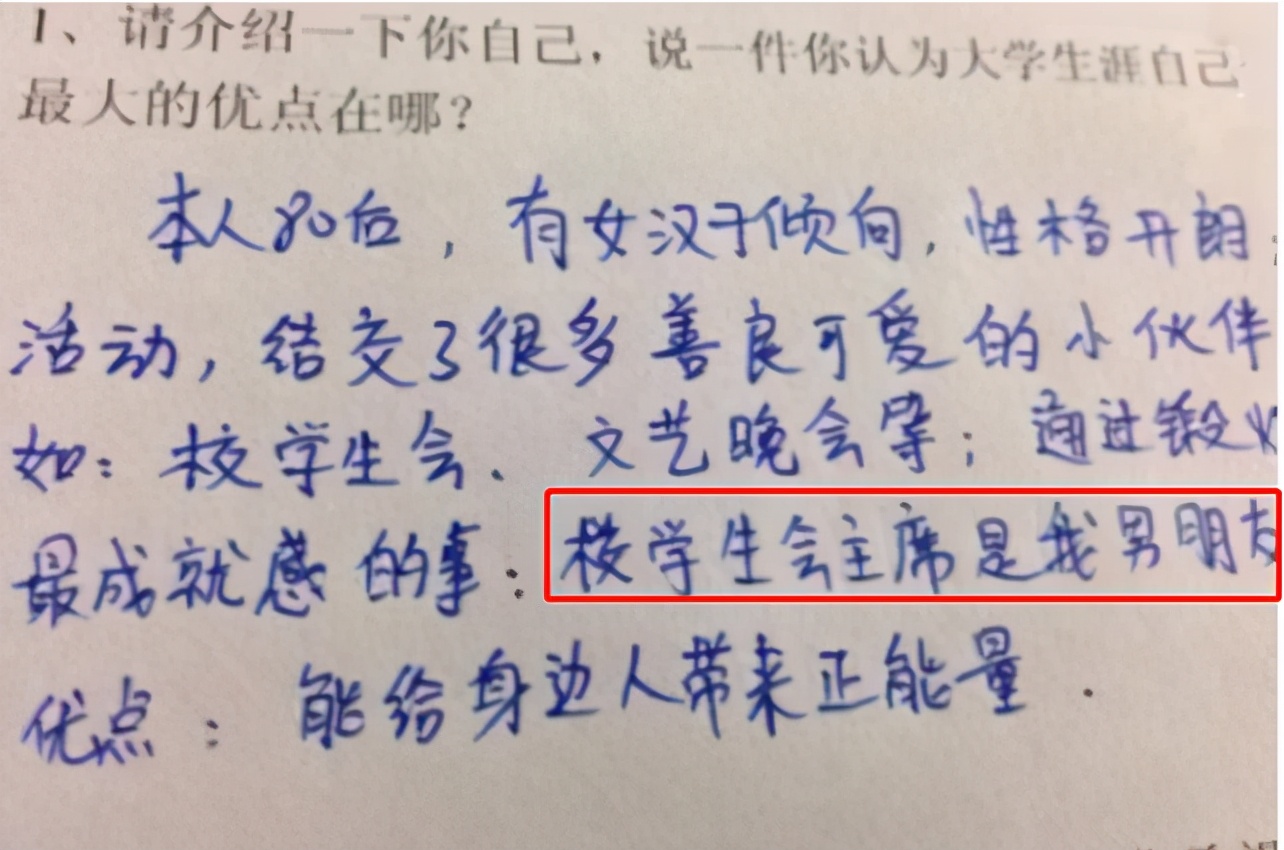 1、请介绍一下你自己，说一件你认为大学生涯自己
最大的优点在哪？
本人80后，有女汉子倾向，性格开朗
活动，结交了很多善良可爱的小伙伴
如：校学生会、文艺晚会等；通过锻
最成就感的事：校学生会主席是我男朋友
优点：能给身边人带来正能量．